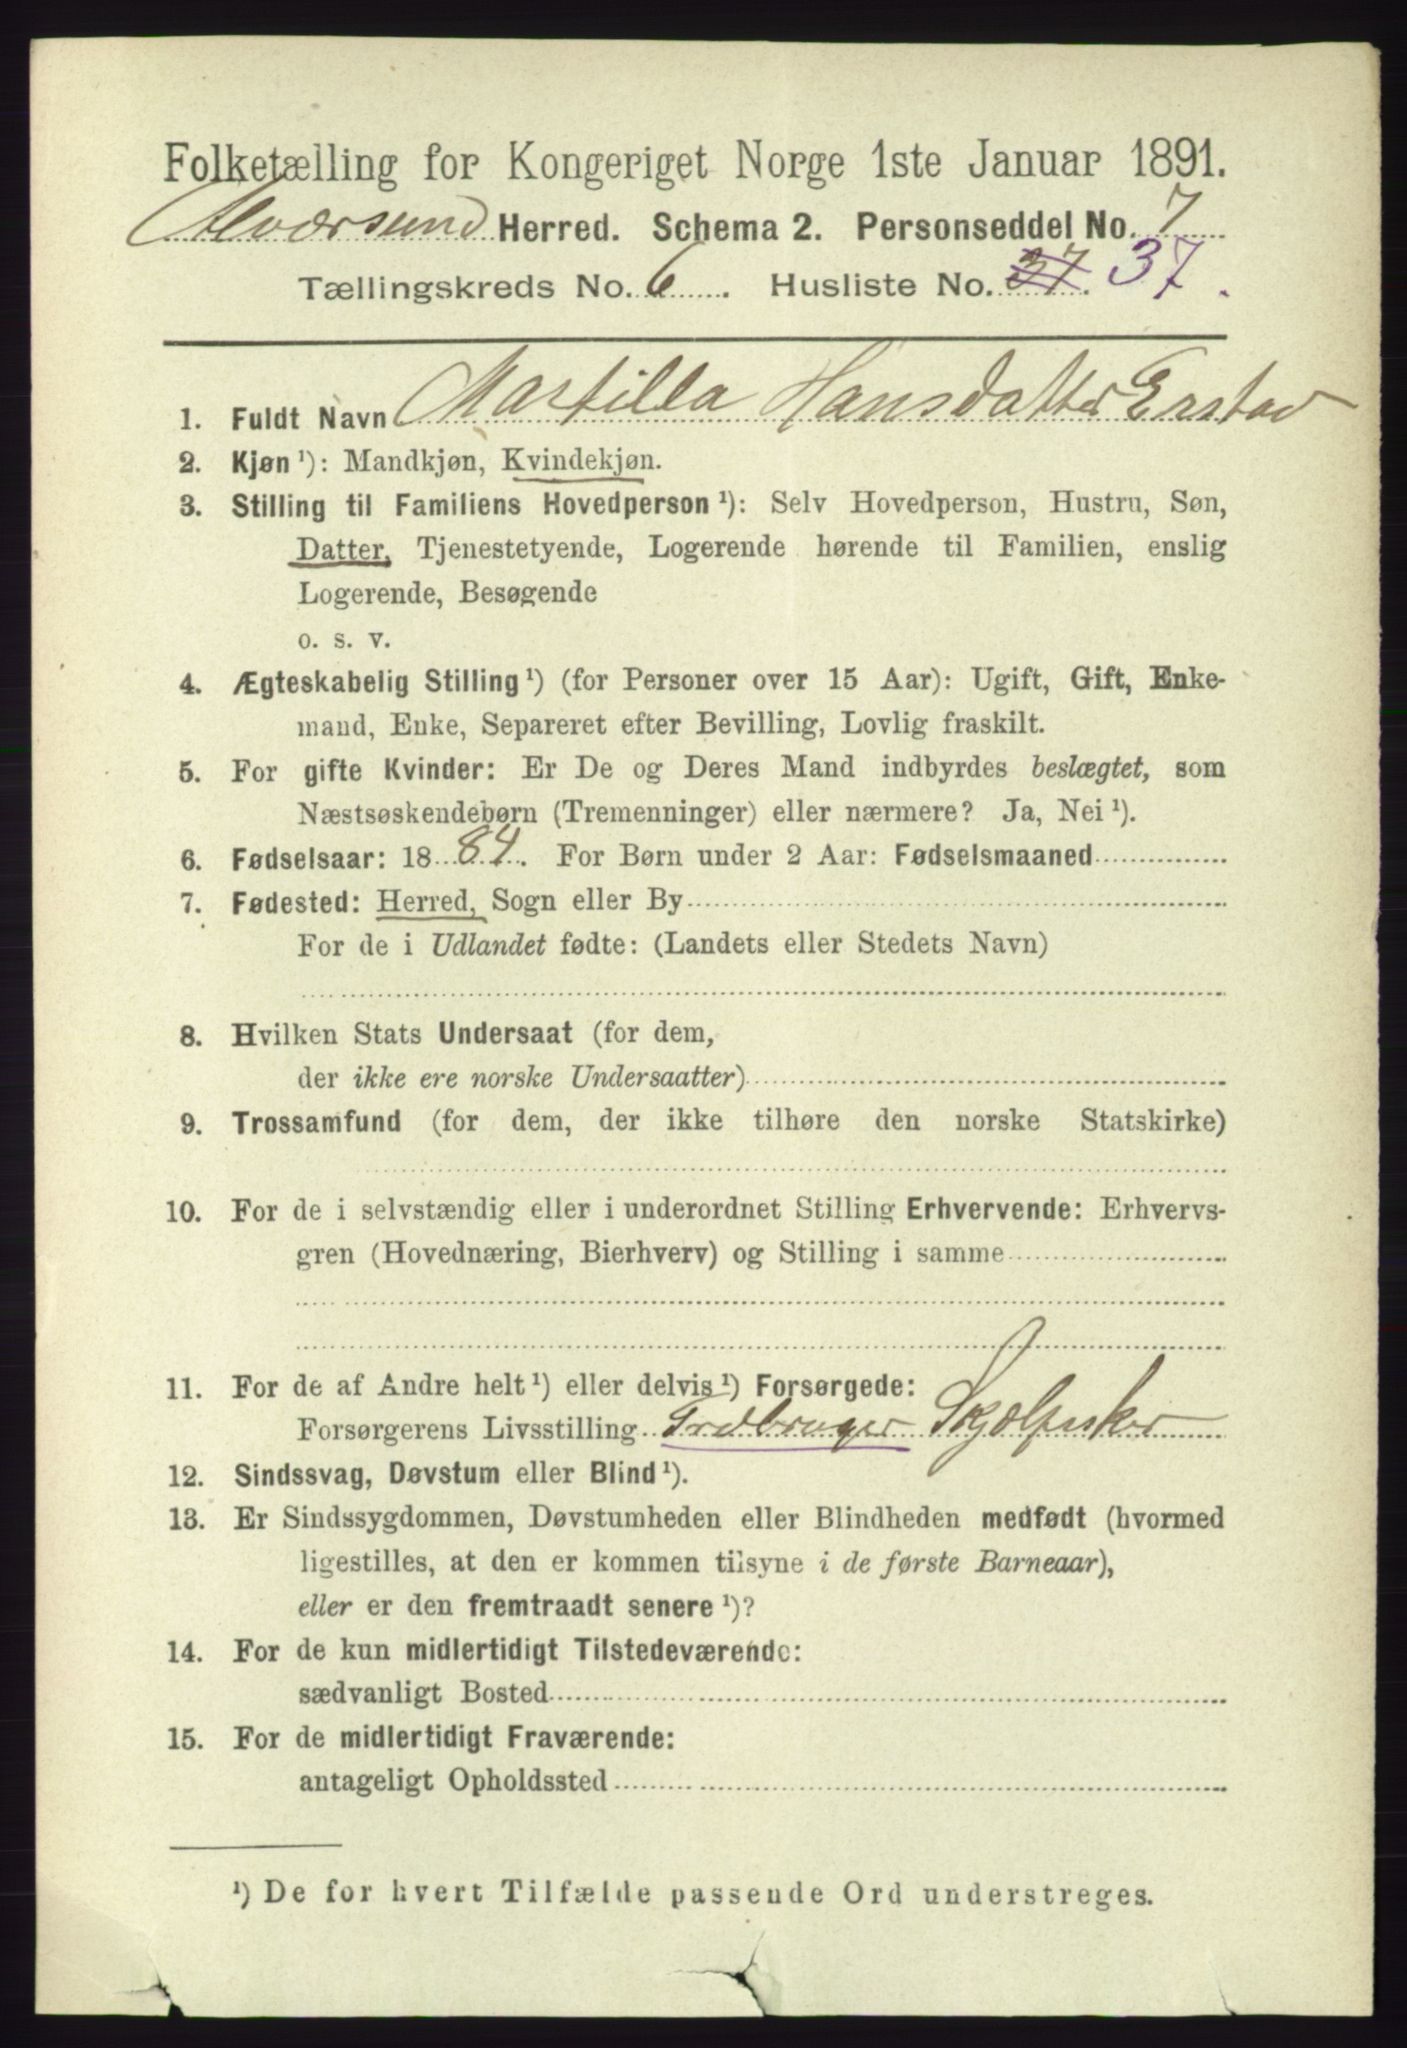 Folketælling for Kongeriget Norge 1ste Januar 1891.
Alværsund Herred. Schema 2. Personseddel No. 7
Tællingskreds No. 6. Husliste No. 37. 37.
1. Fuldt Navn Martilla Hansdatter Erstad
2. Kjøn ¹): Mandkjøn, Kvindekjøn.
3. Stilling til Familiens Hovedperson ¹): Selv Hovedperson, Hustru, Søn,
Datter, Tjenestetyende, Logerende hørende til Familien, enslig
Logerende, Besøgende
o. s. v.
4. Ægteskabelig Stilling ¹) (for Personer over 15 Aar): Ugift, Gift, Enke-
mand, Enke, Separeret efter Bevilling, Lovlig fraskilt.
5. For gifte Kvinder: Er De og Deres Mand indbyrdes beslægtet, som
Næstsøskendebørn (Tremenninger) eller nærmere? Ja, Nei ¹).
6. Fødselsaar: 1884. For Børn under 2 Aar: Fødselsmaaned
7. Fødested: Herred, Sogn eller By
For de i Udlandet fødte: (Landets eller Stedets Navn)
8. Hvilken Stats Undersaat (for dem,
der ikke ere norske Undersaatter)
9. Trossamfund (for dem, der ikke tilhøre den norske Statskirke)
10. For de i selvstændig eller i underordnet Stilling Erhvervende: Erhvervs-
gren (Hovednæring, Bierhverv) og Stilling i samme
11. For de af Andre helt ¹) eller delvis ¹) Forsørgede:
Forsørgerens Livsstilling
12. Sindssvag, Døvstum eller Blind ¹).
13. Er Sindssygdommen, Døvstumheden eller Blindheden medfødt (hvormed
ligestilles, at den er kommen tilsyne i de første Barneaar),
eller er den fremtraadt senere ¹)?
14. For de kun midlertidigt Tilstedeværende:
sædvanligt Bosted
15. For de midlertidigt Fraværende:
antageligt Opholdssted
¹) De for hvert Tilfælde passende Ord understreges.